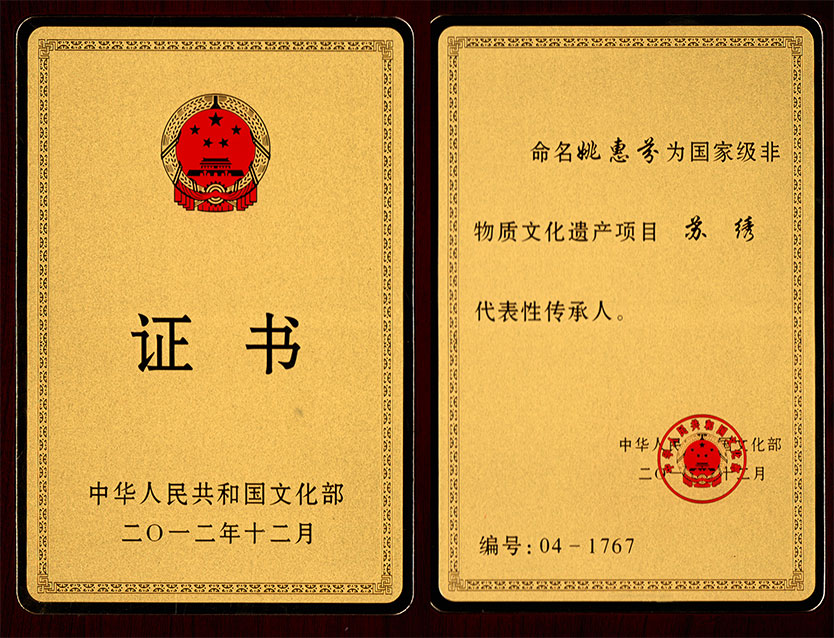 证 书
中华人民共和国文化部
二〇一二年十二月
命名姚惠芬为国家级非
物质文化遗产项目 苏 绣
代表性传承人。
中华人民 国文化部
二〇一 十二月
中华人民共和国文化部
编号：04－1767